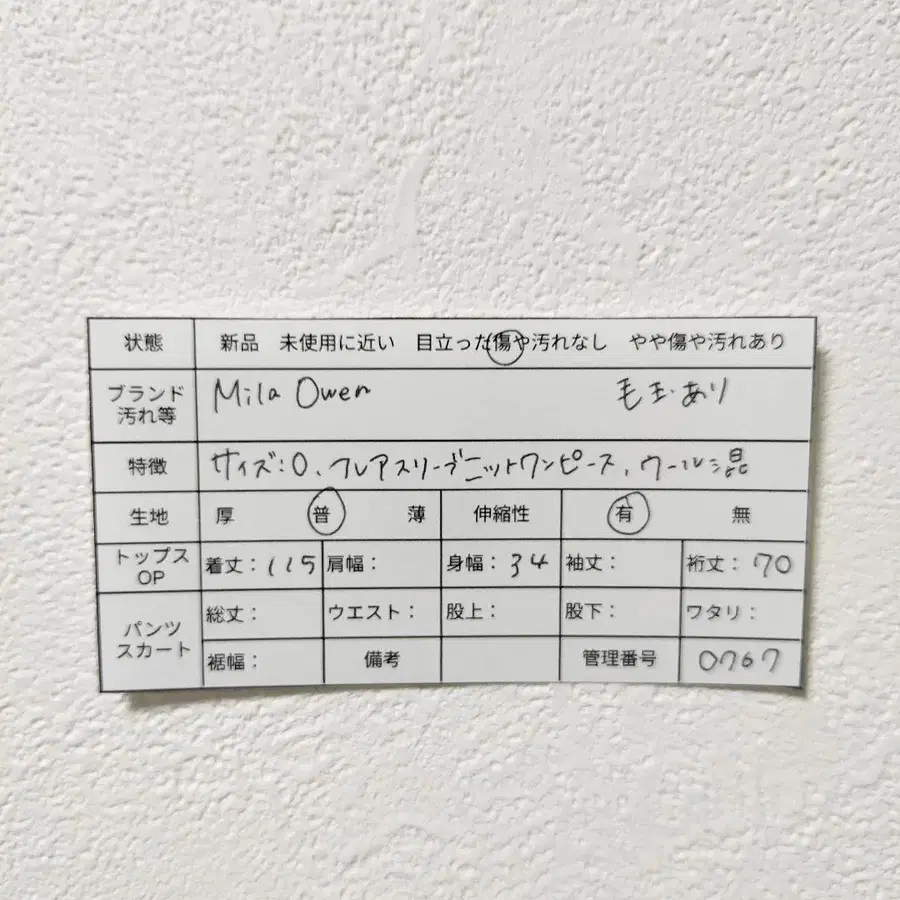 状態 新品 未使用に近い 目立った傷や汚れなし やや傷や汚れあり
ブランド
汚れ等 Mila Owen 毛玉あり
特徴 サイズ:0、フレアスリーブニットワンピース、ウール混
生地 厚 普 薄 伸縮性 有 無
トップス
OP 着丈:115 肩幅: 身幅:34 袖丈: 裄丈:70
パンツ
スカート 総丈: ウエスト: 股上: 股下: ワタリ:
裾幅: 備考 管理番号 0767